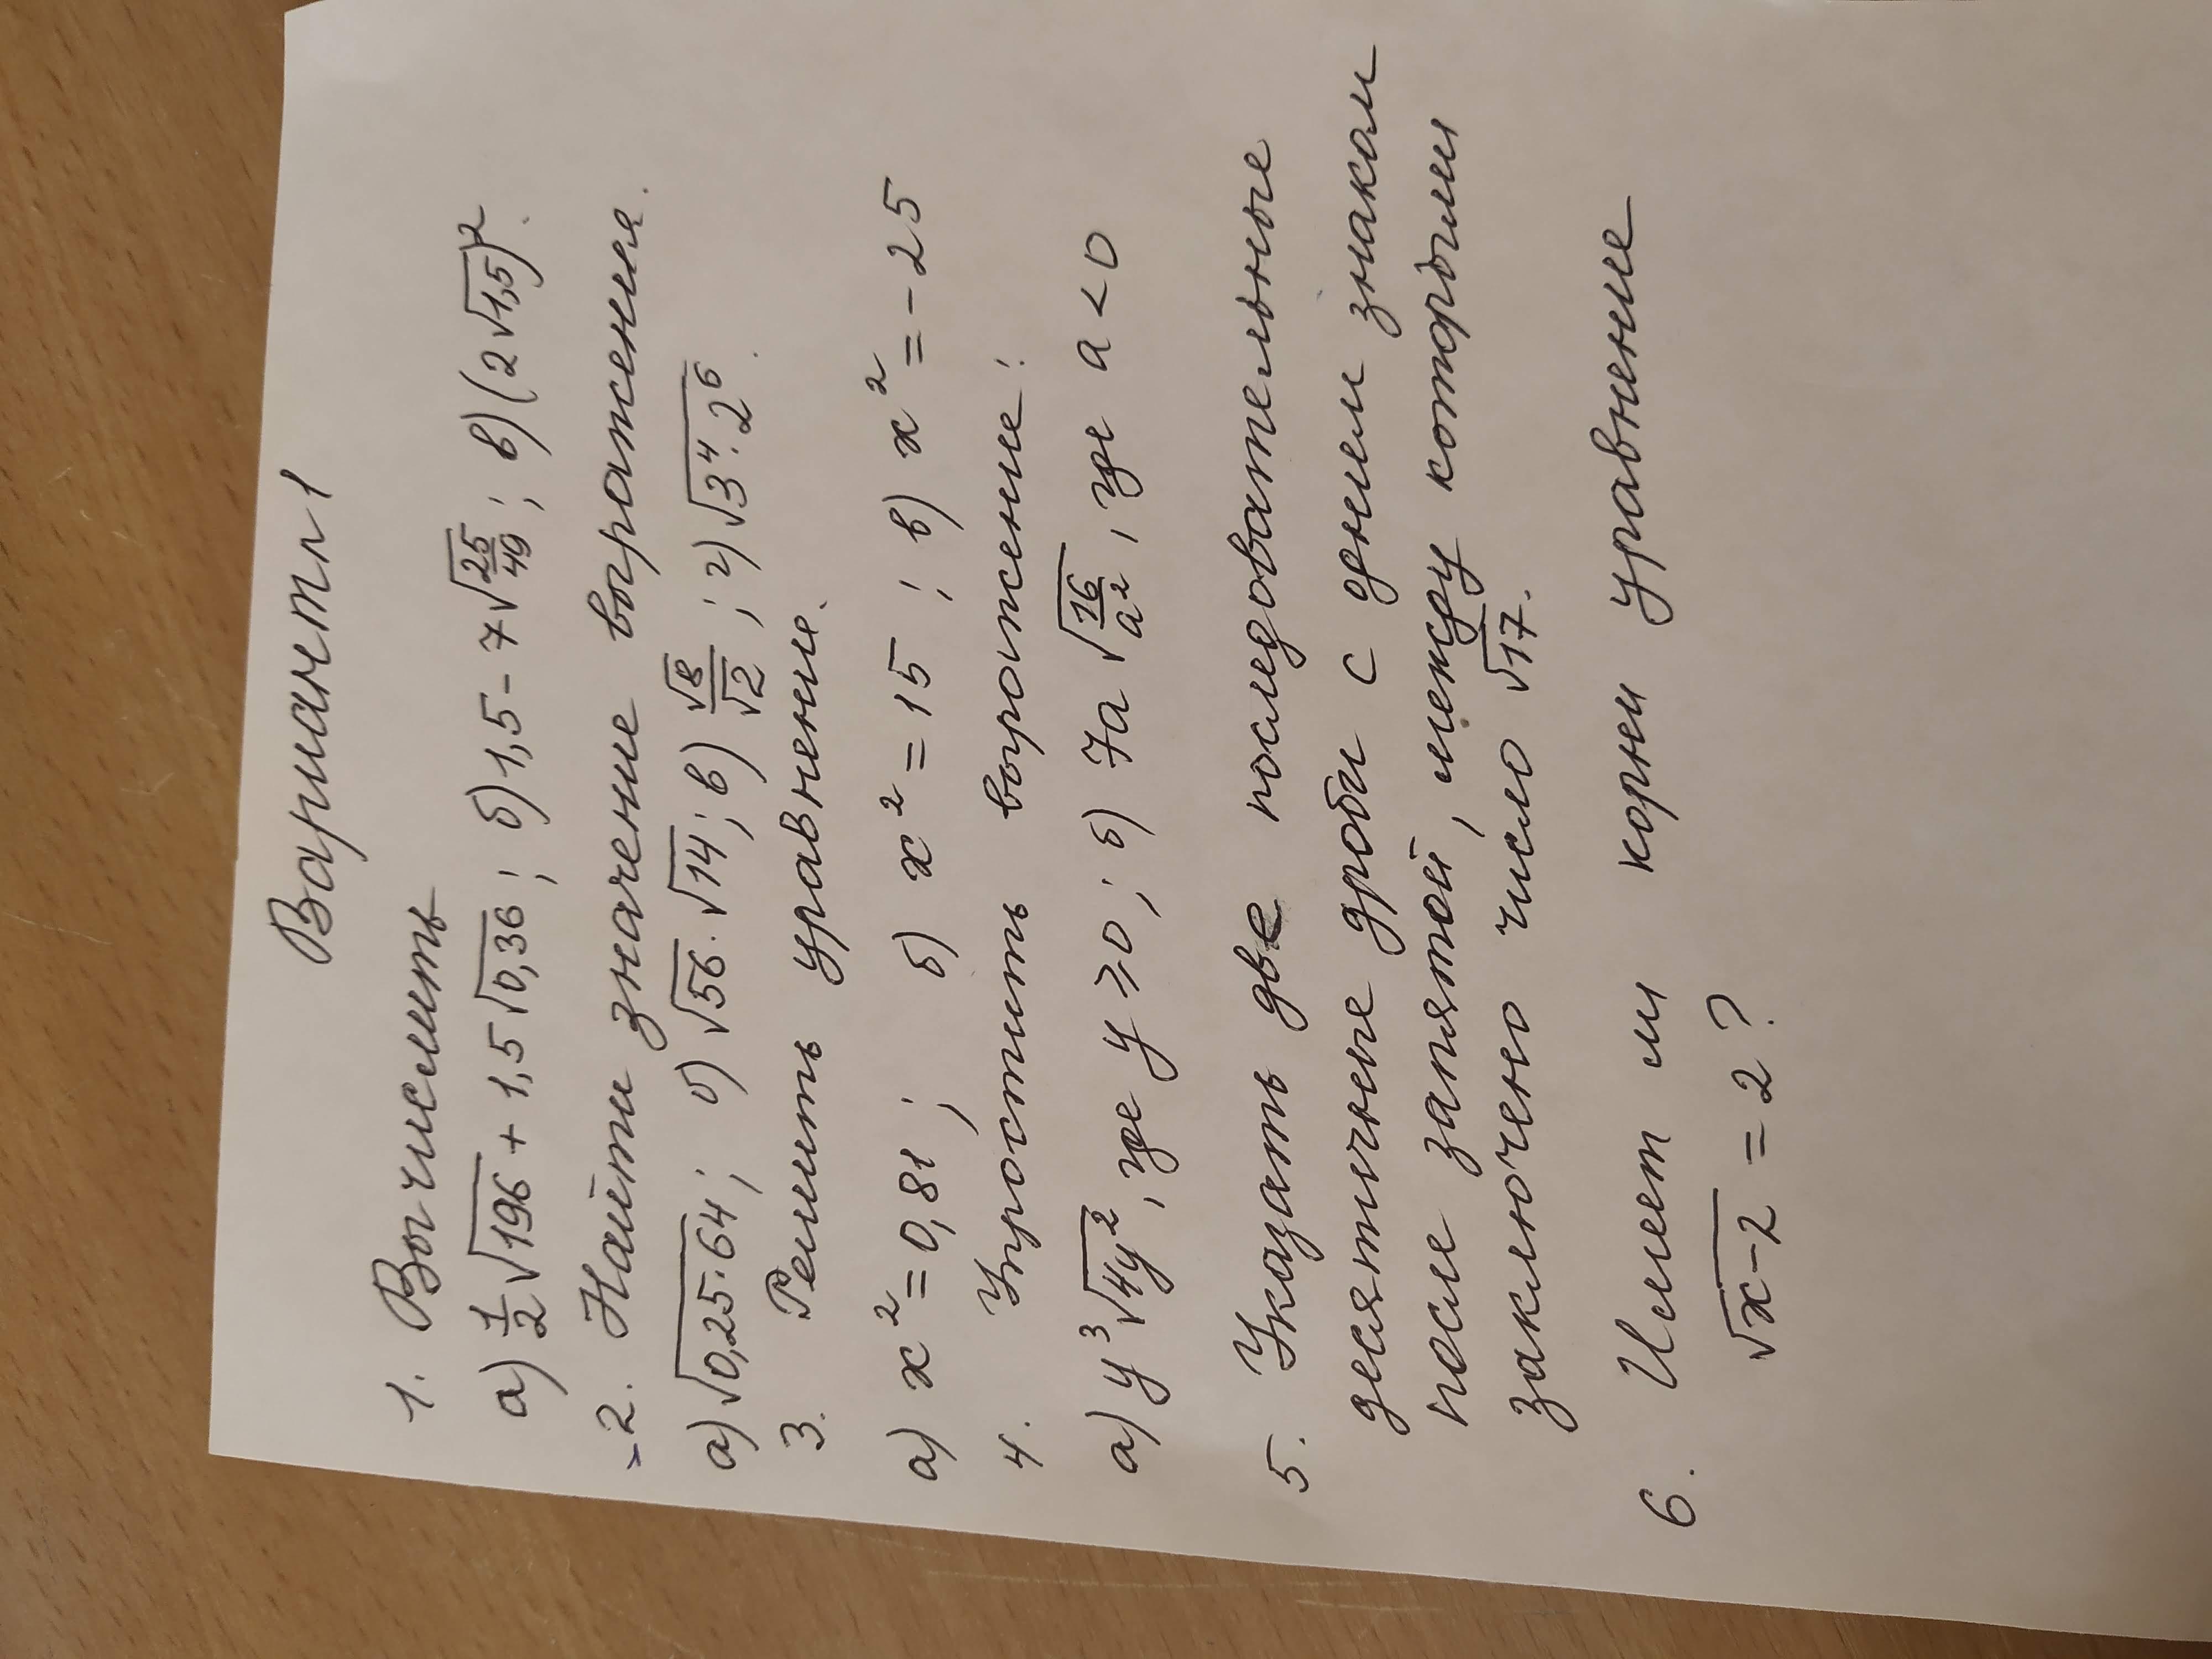 Вариант 1
1. Вычислить
а) 1/2 √196 + 1,5 √0,36 ; б) 1,5 - 7 √25/49 ; в) (2√1,5)².
2. Найти значение выражения.
а) √0,25·64 ; б) √56 · √14 ; в) √8/√2 ; г) √3⁴·2⁶ .
3. Решить уравнение.
а) x² = 0,81 ; б) x² = 15 ; в) x² = -25
4. Упростить выражение:
а) y³√4y² , где y ⩾ 0 ; б) 7a √16/a² , где a < 0
5. Указать две последовательные
десятичные дроби с одним знаком
после запятой, между которыми
заключено число √17.
6. Имеет ли корни уравнение
√x-2 = 2 ?